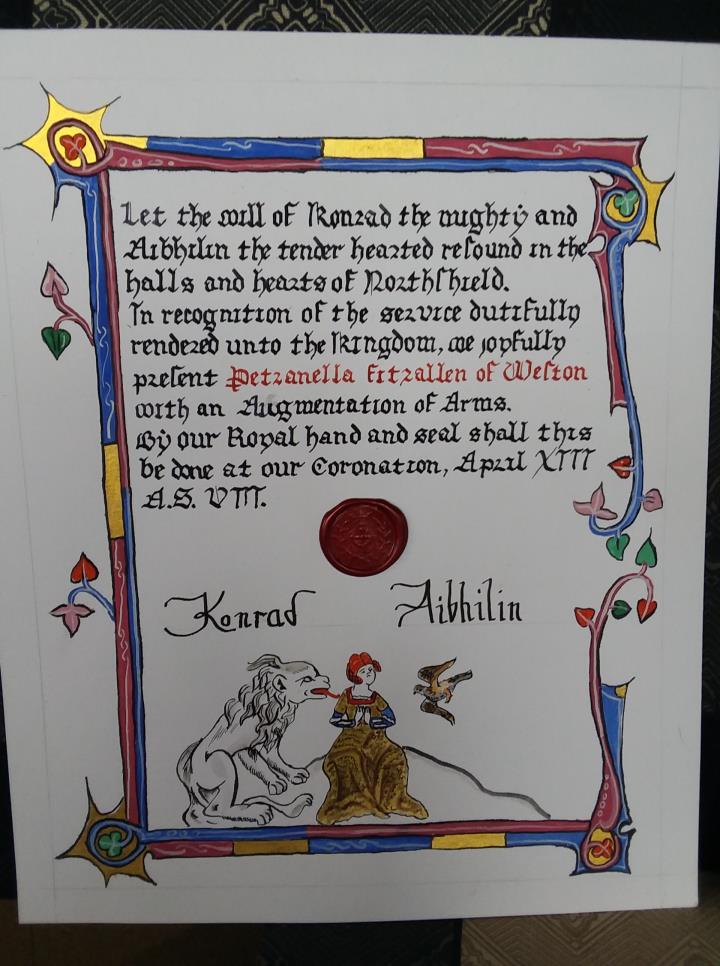 Let the will of Konrad the mighty and
Aibhilin the tender hearted resound in the
halls and hearts of Northshield.
In recognition of the service dutifully
rendered unto the Kingdom, we joyfully
present Petranella Fitzallen of Weston
with an Augmentation of Arms.
By our Royal hand and seal shall this
be done at our Coronation, April XIII
A.S. VIII.
Konrad Aibhilin